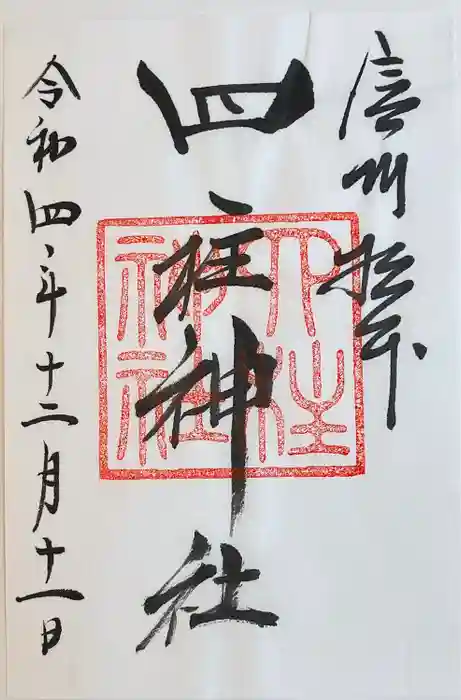 信州拝拝
四柱神社
四柱神社
令和四年十二月十一日